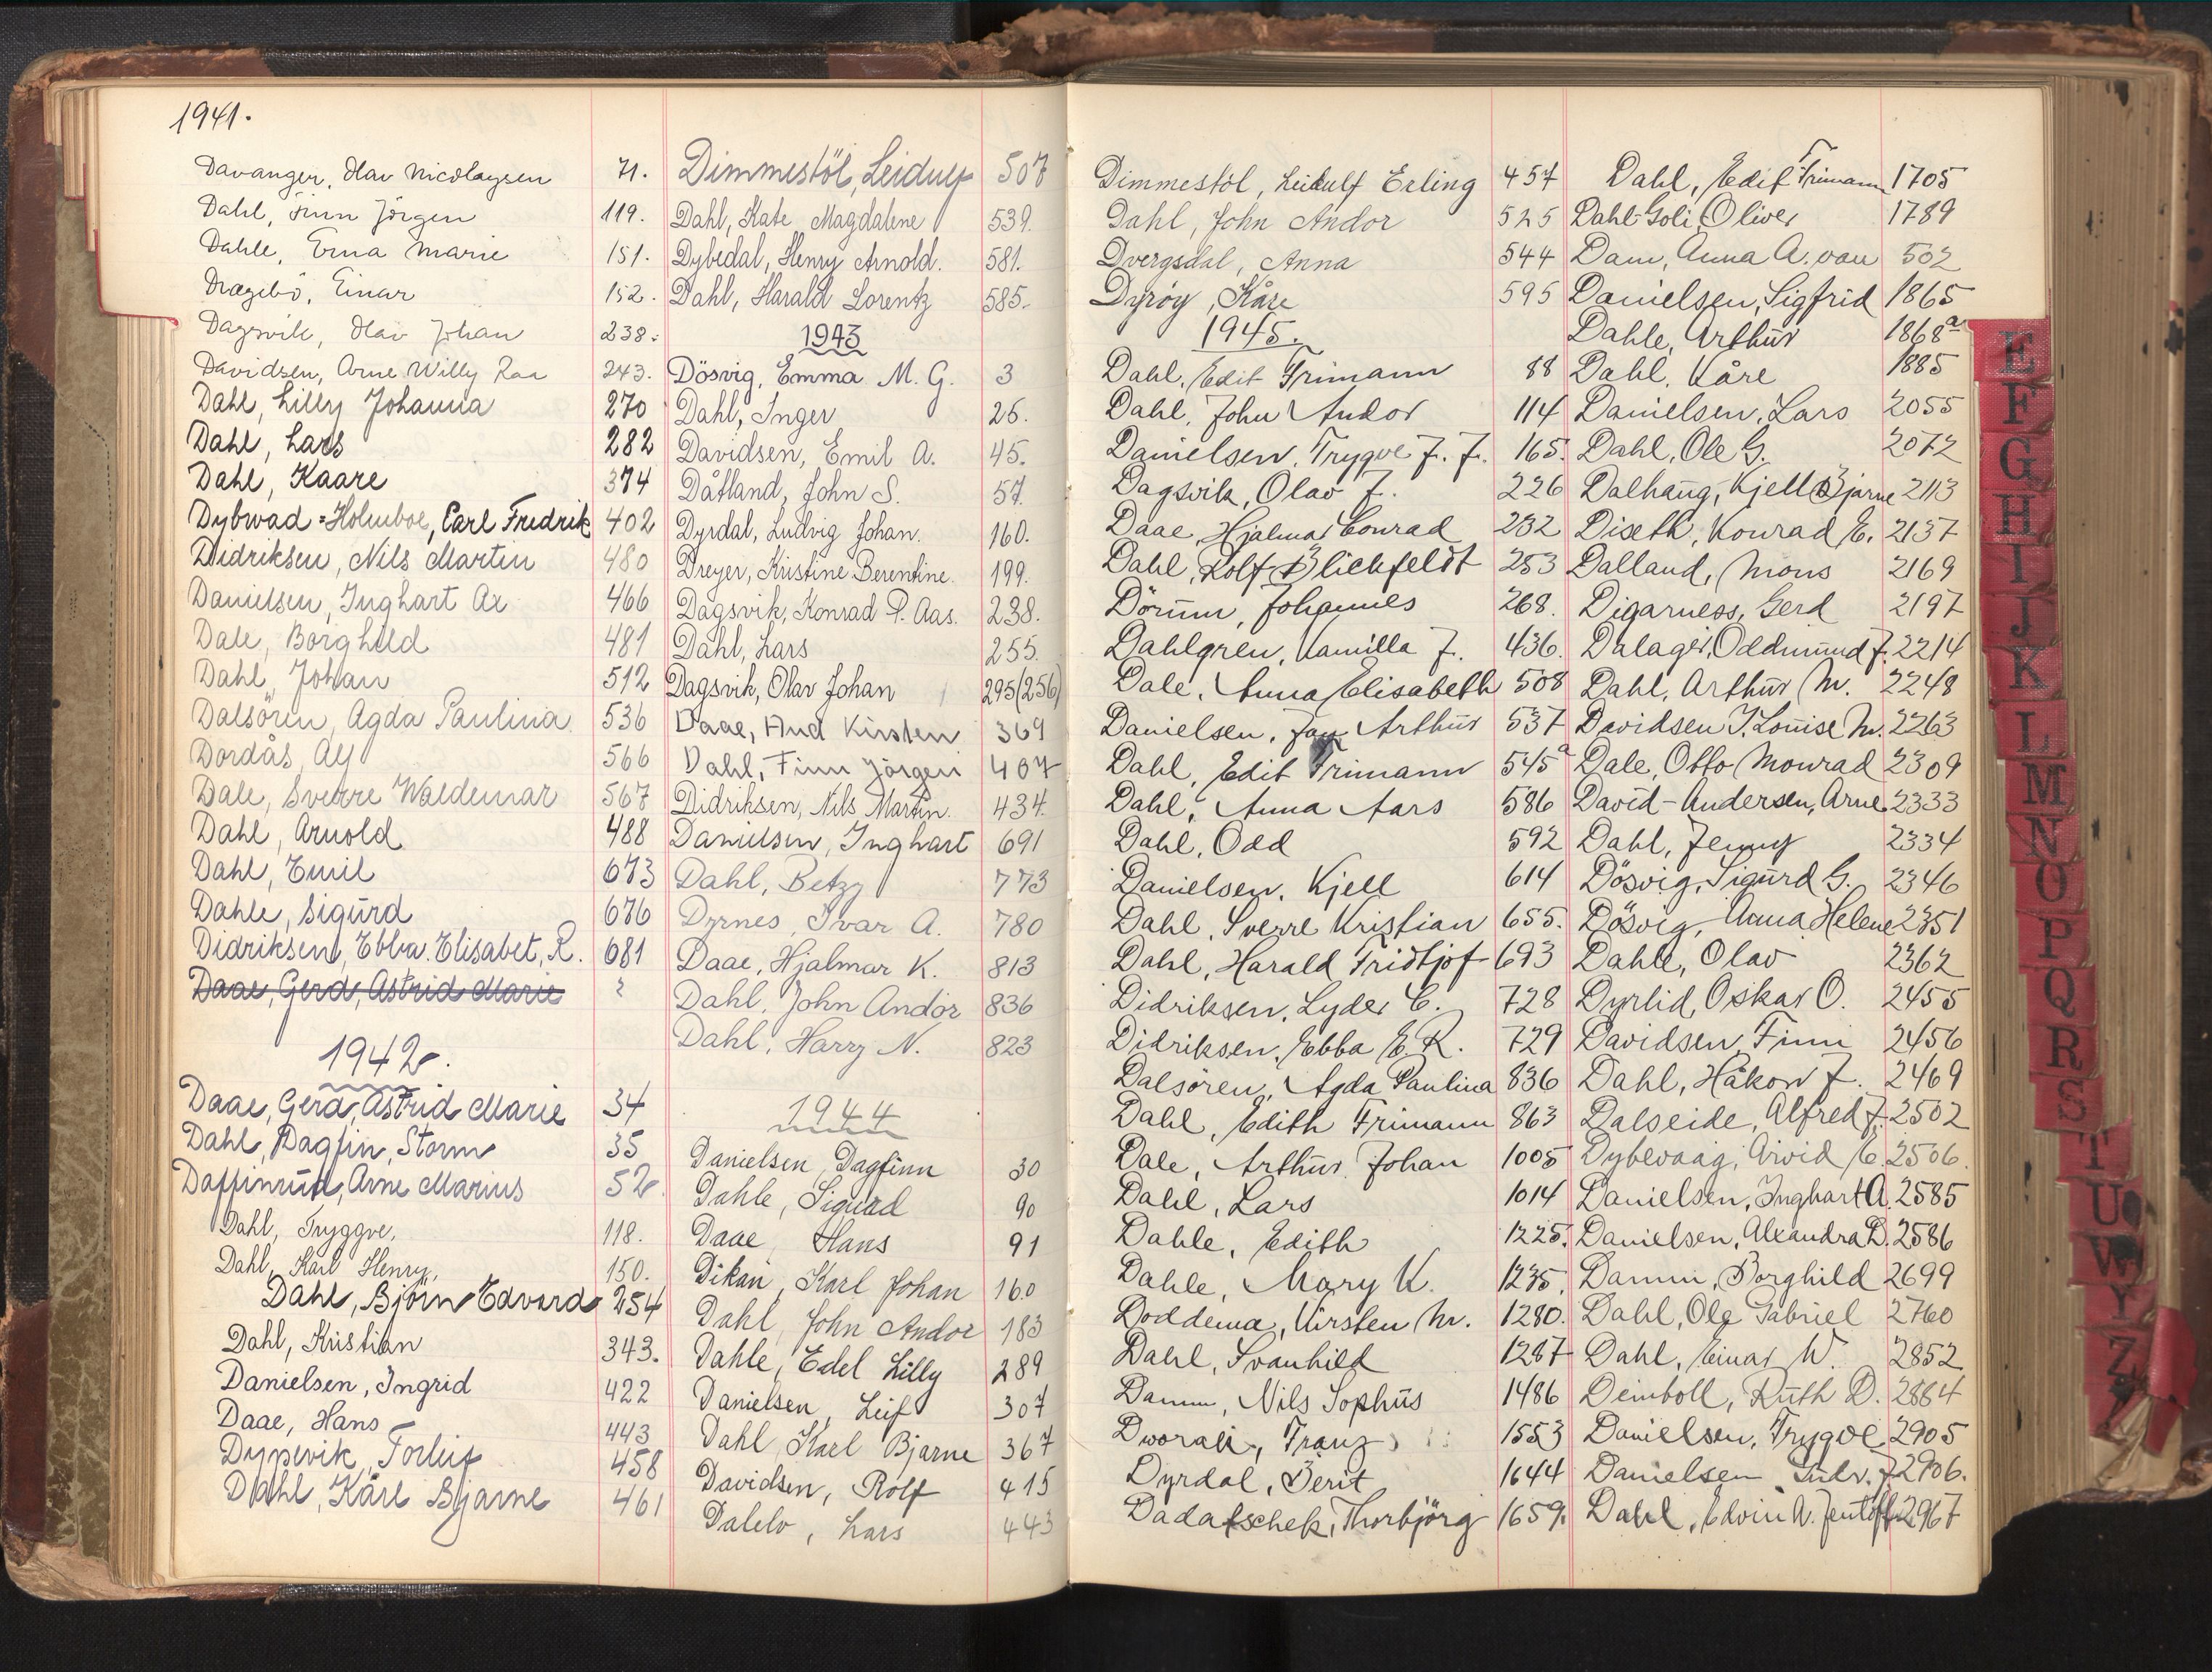 1941.
Davanger, Olav Nicolaysen 71.
Dahl, Finn Jörgen 119.
Dahle, Erna Marie 151.
Drægebö, Einar 152.
Dagsvik, Olav Johan 238.
Davidsen, Arne Willy 243.
Dahl, Lilly Johanna 270
Dahl, Lars 282
Dahl, Kaare 374
Dybwad-Holmboe, Carl Fredrik 402
Didriksen, Nils Martin 480
Danielsen, Inghart Ax 466
Dale, Borghild 481
Dahl, Johan 512
Dalsören, Agda Paulina 536
Dordås, Alf 566
Dale, Sverre Waldemar 567
Dahl, Arnold 488
Dahl, Emil 673
Dahle, Sigurd 676
Didriksen, Ebba Elisabet, R. 681
Daae, Gerd, Astrid Marie ?
1942.
Daae, Gerd, Astrid Marie 34
Dahl, Dagfin, Storm 35
Daffinrud, Arne Marius 52
Dahl, Tryggve, 118.
Dahl, Karl Henry, 150.
Dahl, Björn Edvard 254
Dahl, Kristian 343.
Danielsen, Ingrid 422
Daae, Hans 443
Dypevik, Torleif 458
Dahl, Kåre Bjarne 461
Dimmestöl, Leidulf 507
Dahl, Kate Magdalene 539.
Dybedal, Henry Arnold. 581.
Dahl, Harald Lorentz 585.
1943
Dösvig, Emma M. G. 3
Dahl, Inger 26.
Davidsen, Emil A. 45.
Dåtland, John S. 57.
Dyrdal, Ludvig Johan. 160.
Dreyer, Kristine Berentine. 199.
Dagsvik, Konrad P. Aas. 238.
Dahl, Lars 255.
Dagsvik, Olav Johan 295(256)
Daae, Aud Kirsten 369
Dahl, Finn Jörgen 407
Didriksen, Nils Martin. 434.
Danielsen, Inghart 691
Dahl, Betzy 773
Dyrnes, Ivar A. 780
Daae, Hjalmar K. 813
Dahl, John Andor 836
Dahl, Harry N. 823
1944
Danielsen, Dagfinn 30
Dahle, Sigurd 90
Daae, Hans 91
Dikan, Karl Johan 160
Dahl, John Andor 183
Dahle, Edel Lilly 289
Danielsen, Leif 307
Dahl, Karl Bjarne 367
Davidsen, Rolf 415
Dalelv, Lars 443
Dimmestöl, Leidulf Erling 457
Dahl, John Andor 525
Dvergsdal, Anna 544
Dyröy, Kåre 595
1945.
Dahl, Edit Frimann 88
Dahl, John Andor 114
Danielsen, Trygve J. J. 165.
Dagsvik, Olav J. 226
Daae, Hjalmar Conrad 232
Dahl, Rolf Blichfeldt 253
Dörum, Johannes 268.
Dahlgren, Kamilla J. 436.
Dale, Anna Elisabeth 508
Danielsen, Jan Arthur 537
Dahl, Edit Frimann 545a
Dahl, Anna Aars 586
Dahl, Odd 592
Danielsen, Kjell 614
Dahl, Sverre Kristian 655.
Dahl, Harald Fridtjof 693
Didriksen, Lyder C. 728
Didriksen, Ebba E. R. 729
Dalsören, Agda Paulina 836
Dahl, Edith Frimann 863
Dale, Arthur Johan 1005
Dahl, Lars 1014
Dahle, Edith 1225.
Dahle, Mary K. 1235.
Doddema, Kirsten M. 1280.
Dahl, Svanhild 1287
Damm, Nils Sophus 1486
Dworak, Franz 1553
Dyrdal, Berit 1644
Dadatschek, Thorbjörg 1659.
Dahl, Edit Frimann 1705
Dahl-Goli, Oliver 1789
Dam, Anna A. van 502
Danielsen, Sigfrid 1865
Dahle, Arthur 1868a
Dahl, Kåre 1885
Danielsen, Lars 2055
Dahl, Ole G. 2072
Dalhaug, Kjell Bjarne 2113
Diseth, Konrad E. 2137
Dalland, Mons 2169
Digarness, Gerd 2197
Dalager, Oddmund J. 2214
Dahl, Arthur M. 2248
Davidsen J. Louise M. 2263
Dale, Otto Monrad 2309
David-Andersen, Arne 2333
Dahl, Jenny 2334
Dösvig, Sigurd G. 2346
Dösvig, Anna Helene 2351
Dahle, Olav 2362
Dyrlid, Oskar O. 2455
Davidsen, Finn 2456
Dahl, Håkon J. 2469
Dalseide, Alfred J. 2502
Dybevaag, Arvid E. 2506.
Danielsen, Inghart A. 2585
Danielsen, Alexandra D. 2586
Damm, Borghild 2699
Dahl, Ole Gabriel 2760
Dahl, Einar W. 2852
Deinboll, Ruth D. 2864
Danielsen, Trygve 2905
Danielsen 2906.
Dahl, Edvin A. 2967
E
F
G
H
I
J
K
L
M
N
O
P
Q
R
S
T
U
W
Y
Z